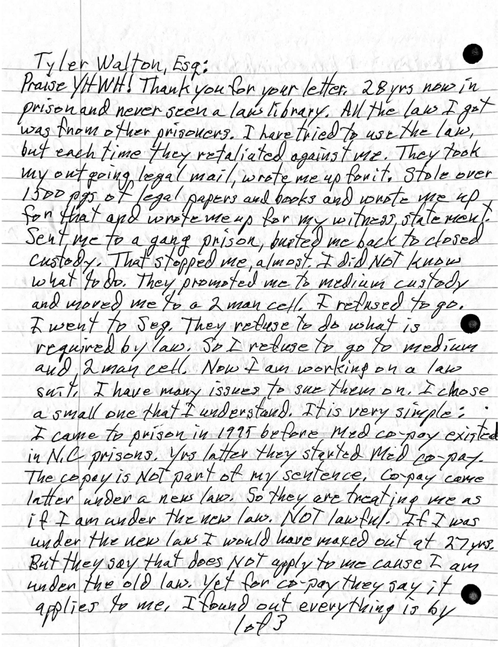 Tyler Walton, Esq:
Praise YHWH! Thank you for your letter. 28 yrs now in
prison and never seen a law library. All the law I got
was from other prisoners. I have tried to use the law,
but each time they retaliated against me. They took
my outgoing legal mail, wrote me up for it. Stole over
1500 pgs of legal papers and books and wrote me up
for that and wrote me up for my witness statement.
Sent me to a gang prison, busted me back to closed
custody. That stopped me, almost. I did NOT know
what to do. They promoted me to medium custody
and moved me to a 2 man cell. I refused to go.
I went to Seg. They refuse to do what is
required by law. So I refuse to go to medium
and 2 man cell. Now I am working on a law
suit. I have many issues to sue them on. I chose
a small one that I understand. It is very simple:
I came to prison in 1995 before Med co-pay existed
in N.C prisons. Yrs latter they started Med co-pay.
The copay is Not part of my sentence. Co-pay came
latter under a new law. So they are treating me as
if I am under the new law. NOT lawful. If I was
under the new law I would have maxed out at 27 yrs.
But they say that does NOT apply to me cause I am
under the old law. Yet for co-pay they say it
applies to me. I found out everything is by
1 of 3